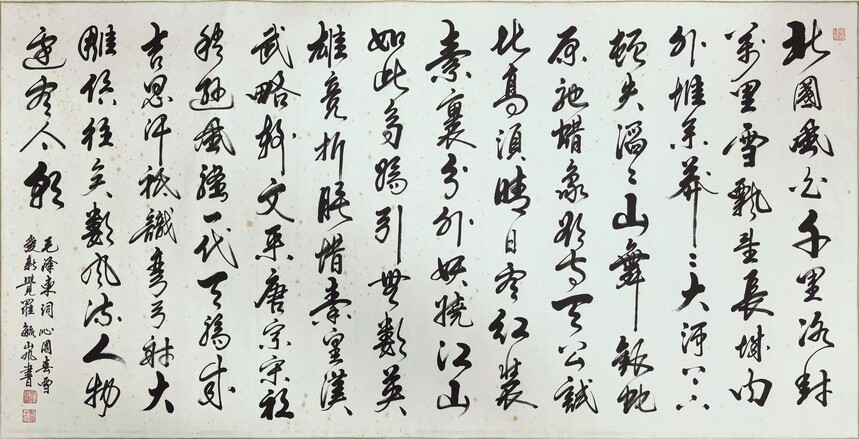 北國風光千里冰封
萬里雪飄望長城內
外惟余莽〻大河上下
頓失滔〻山舞銀蛇
原馳蜡象欲與天公試
比高須晴日看紅裝
素裹分外妖嬈江山
如此多嬌引無數英
雄競折腰惜秦皇漢
武略輸文采唐宗宋祖
稍遜風騷一代天驕成
吉思汗祇識彎弓射大
雕俱往矣數風流人物
還看今朝
毛澤東詞沁園春雪
愛新覺羅毓書